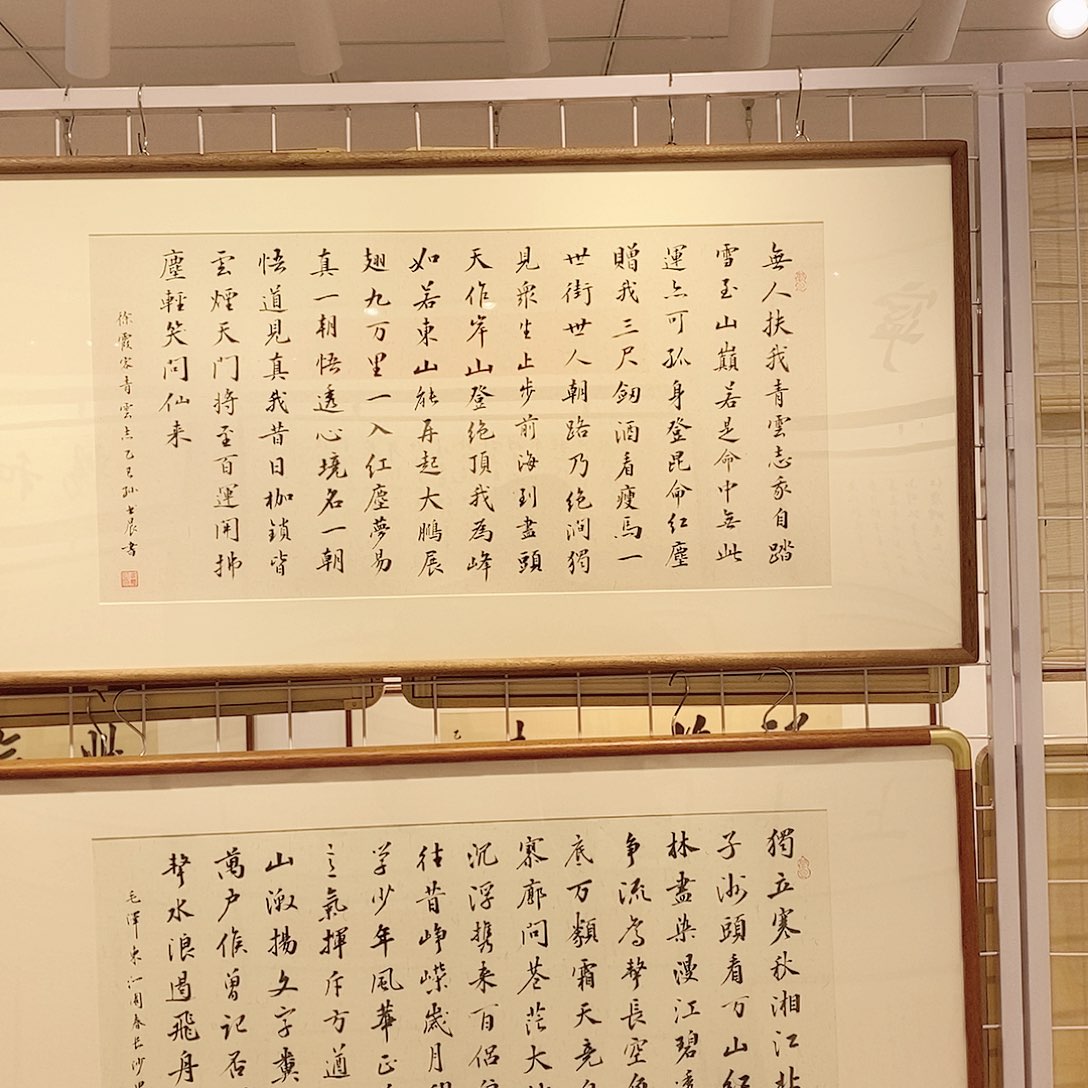 無人扶我青雲志我自踏
雪至山巔若是命中無此
運亦可孤身登昆侖紅塵
贈我三尺劍酒看瘦馬一
世街世人朝路乃絶澗獨
見衆生止步前海到盡頭
天作岸山登絶頂我為峰
如若東山能再起大鵬展
翅九万里一入紅塵夢易
真一朝悟透心境名一朝
悟道見真我昔日枷鎖皆
雲煙天門將至百運開拂
塵輕笑問仙来
徐霞客青雲志乙巳孫書
獨立寒秋湘江北
子洲頭看万山紅
林盡染漫江碧透
争流鹰擊長空
底万類霜天竞
寥廓問苍茫大
沉浮携来百侣
往昔峥嵘歲月
学少年風華正
意氣揮斥方遒
山激揚文字糞
萬户侯曾记否
擊水浪遏飛舟
毛澤東沁園春長沙